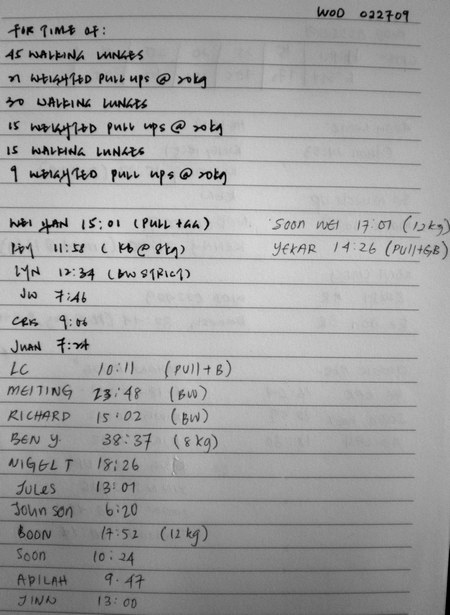 WOD 022709
FOR TIME OF:
45 WALKING LUNGES
21 WEIGHTED PULL UPS @ 20kg
30 WALKING LUNGES
15 WEIGHTED PULL UPS @ 20kg
15 WALKING LUNGES
9 WEIGHTED PULL UPS @ 20kg
WEI HAN 15:01 (PULL + GG) SOON WEI 17:01 (12kg)
11:58 (KB @ 8kg) YEKAR 14:26 (PUll+GB)
LYN 12:34 (BW STRICT)
JW 7:46
CRIS 9:06
JUAN 7:24
LC 10:11 (PUll + B)
MEITING 23:48 (BW)
RICHARD 15:02 (BW)
BEN Y. 38:37 (8 kg)
NIGEL T 18:26
JULES 13:01
Johnson 6:20
BOON 17:52 (12 kg)
Soon 10:24
ADILAH 9.47
JINN 13:00